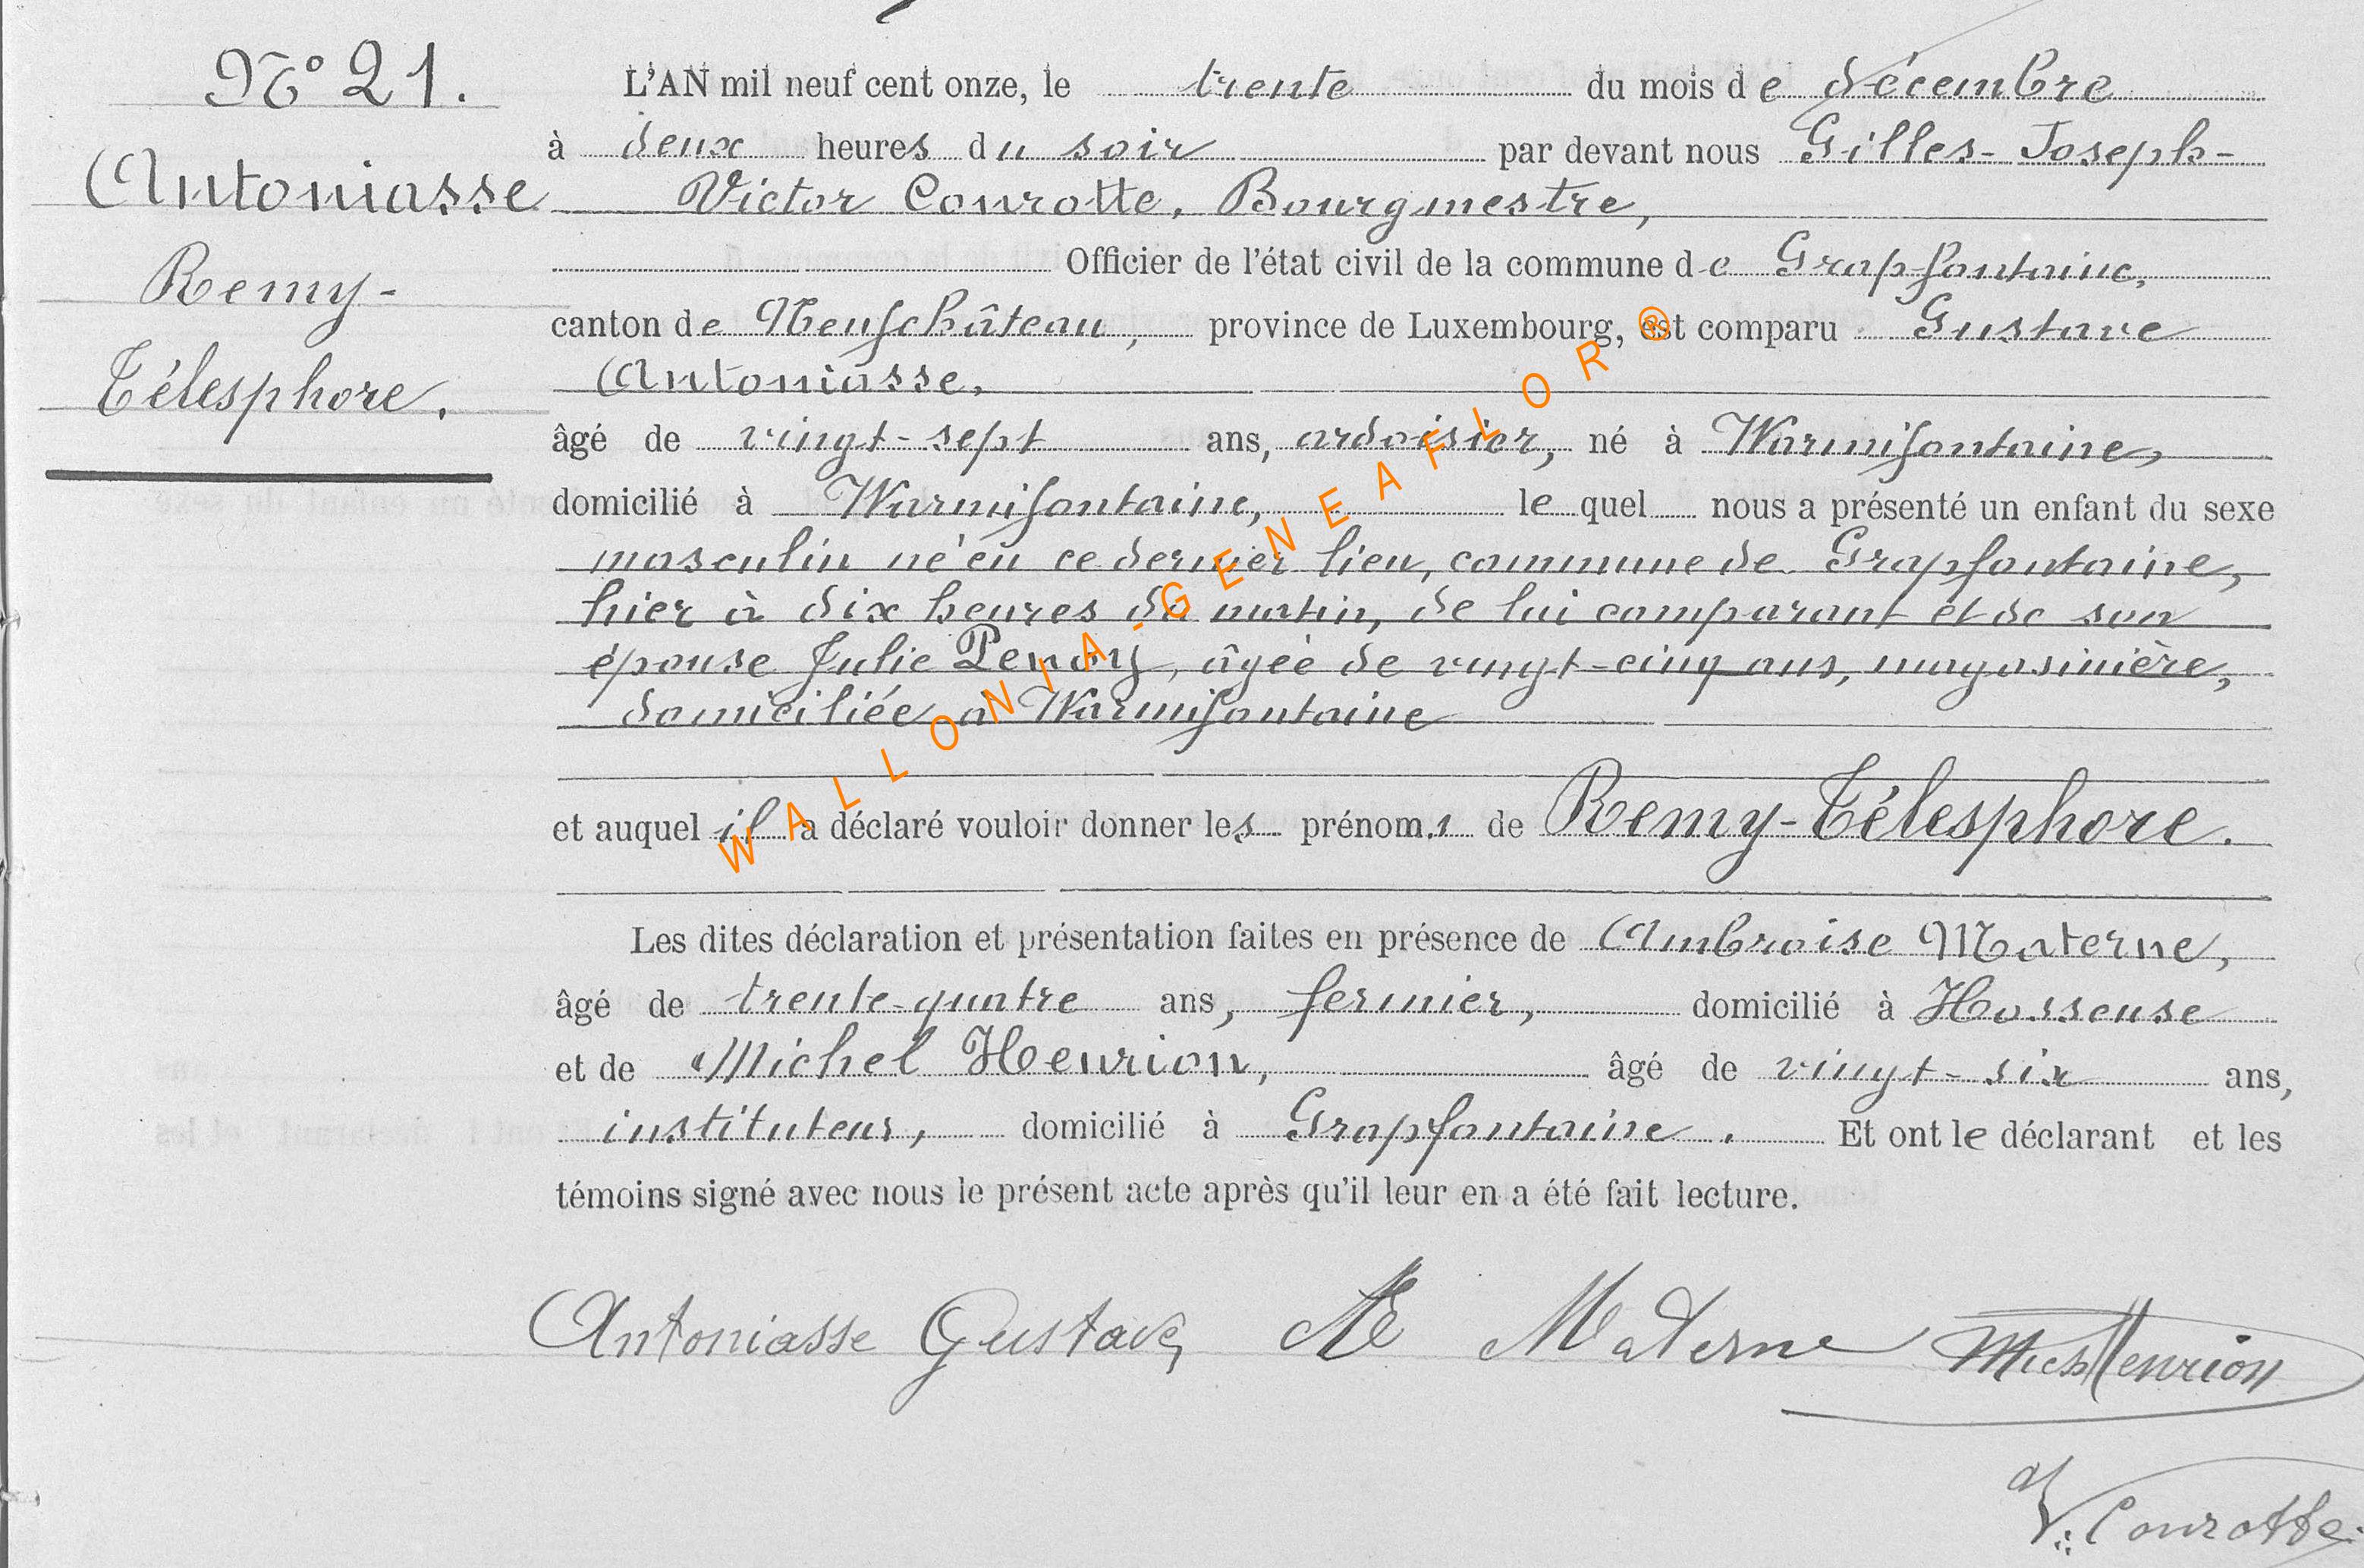 N° 21.
Antoniasse
Remy-
Télesphore.
L'AN mil neuf cent onze, le trente du mois de décembre
à deux heures du soir par devant nous Gilles-Joseph-
Victor Conrotte, Bourgmestre,
Officier de l'état civil de la commune de Grapfontaine,
canton de Neufchâteau, province de Luxembourg, est comparu Gustave
Antoniasse,
âgé de vingt-sept ans, ardoisier, né à Warmifontaine,
domicilié à Warmifontaine, le quel nous a présenté un enfant du sexe
masculin né en ce dernier lieu, commune de Grapfontaine,
hier à dix heures du matin, de lui comparant et de son
épouse Julie Penoy, âgée de vingt-cinq ans, magasinière,
domiciliée à Warmifontaine
et auquel il a déclaré vouloir donner les prénoms de Remy-Télesphore.
Les dites déclaration et présentation faites en présence de Ambroise Materne,
âgé de trente-quatre ans, fermier, domicilié à Hosseuse
et de Michel Henrion, âgé de vingt-six ans,
instituteur, domicilié à Grapfontaine. Et ont le déclarant et les
témoins signé avec nous le présent acte après qu'il leur en a été fait lecture.
Antoniasse Gustave Materne Mich Henrion
V. Conrotte
WALLONIA-GENEAFLOR®